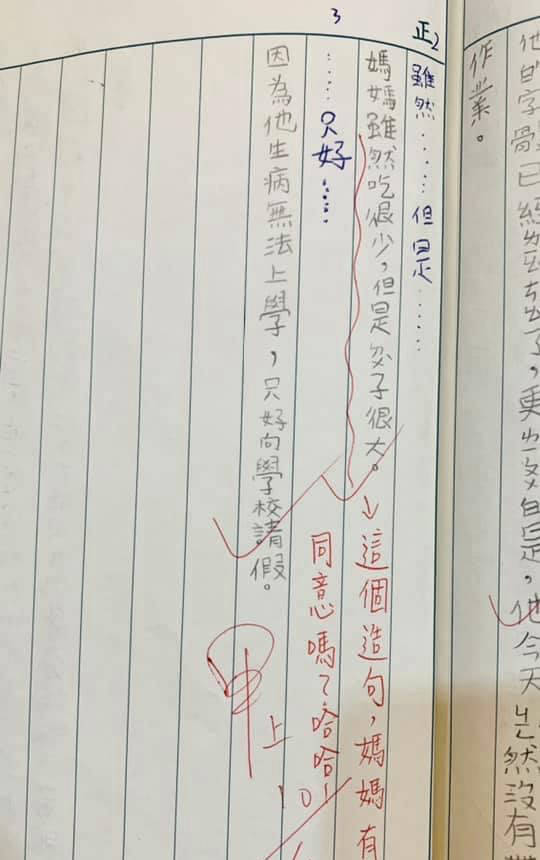 他的字 已經 了，更 是，他今天 然沒有
作業。
正2
雖然……但是……
媽媽雖然吃很少，但是 子很大。
↓這個造句，媽媽有
同意嗎？哈哈！
3
……只好……
因為他生病無法上學，只好向學校請假。
甲上